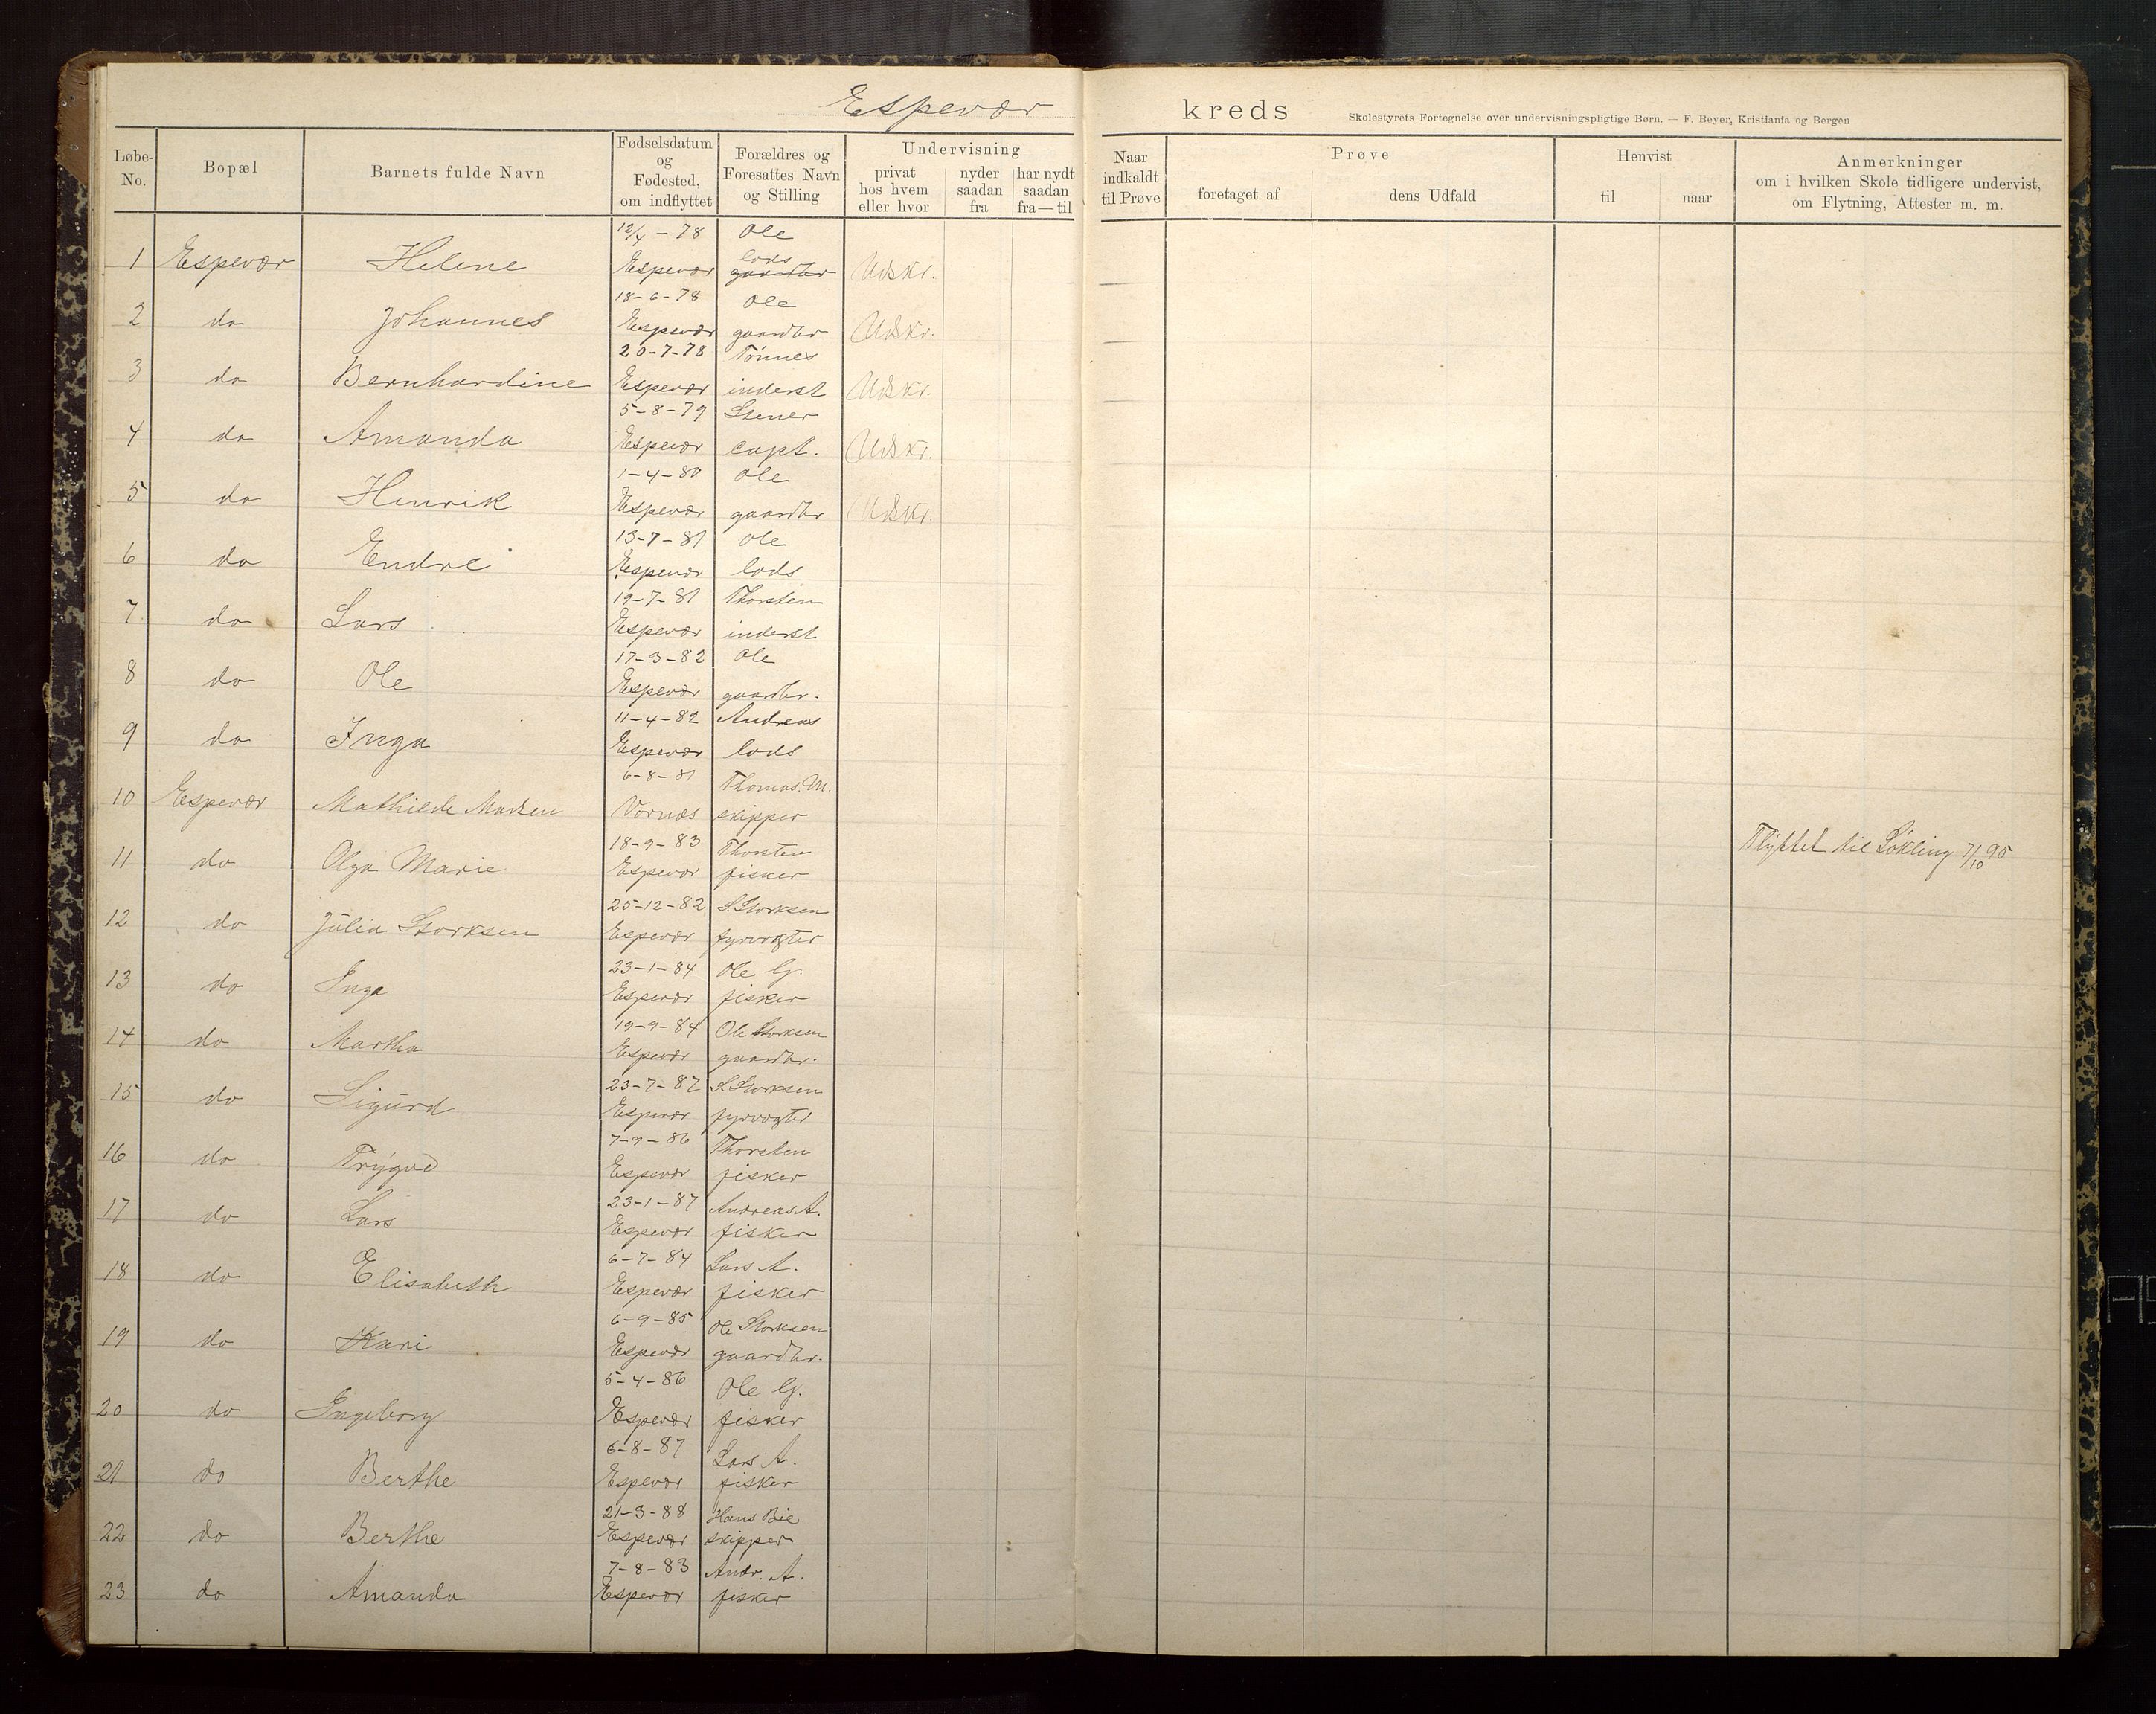 Espevær kreds
Skolestyrets Fortegnelse over undervisningspligtige Børn. — F. Beyer, Kristiania og Bergen
Løbe-No. Bopæl Barnets fulde Navn Fødselsdatum og Fødested, om indflyttet Forældres og Foresattes Navn og Stilling Undervisning privat hos hvem eller hvor nyder saadan fra har nydt saadan fra—til Naar indkaldt til Prøve Prøve foretaget af dens Udfald Henvist til naar Anmerkninger om i hvilken Skole tidligere undervist, om Flytning, Attester m. m.
12/4 - 78 Ole
1 Espevær Helene Espevær lods gaardbr Udskr. —
18-6-78 Ole
2 do Johannes Espevær gaardbr Udskr. —
20-7-78 Tönnes
3 do Bernhardine Espevær inderst Udskr. —
5-8-79 Stener
4 do Amanda Espevær capt. Udskr.
1-4-80 Ole
5 do Henrik Espevær gaardbr Udskr.
13-7-81 Ole
6 do Endre Espevær lods
19-7-81 Thorsten
7 do Lars Espevær inderst
17-3-82 Ole
8 do Ole Espevær gaardbr.
11-4-82 Andreas
9 do Inga Espevær lods
6-8-81 Thomas. M.
10 Espevær Mathilde Madsen Vornæs skipper
18-9-83 Thorsten
11 do Olga Marie Espevær fisker Flyttet til Løkling 7/10 95
25-12-82 S. Storksen
12 do Julia Storksen Espevær fyrvogter
23-1-84 Ole G.
13 do Inga Espevær fisker
19-9-84 Ole Storksen
14 do Martha Espevær gaardbr.
23-7-87 S. Storksen
15 do Sigurd Espevær fyrvogter
7-9-86 Thorsten
16 do Trygve Espevær fisker
23-1-87 Andreas A.
17 do Lars Espevær fisker
6-7-84 Lars A.
18 do Elisabeth Espevær fisker
6-9-85 Ole Storksen
19 do Kari Espevær gaardbr.
5-4-86 Ole G.
20 do Ingeborg Espevær fisker
6-8-87 Lars A.
21 do Berthe Espevær fisker
21-3-88 Hans Bie
22 do Berthe Espevær skipper
7-8-83 Andr. A.
23 do Amanda Espevær fisker